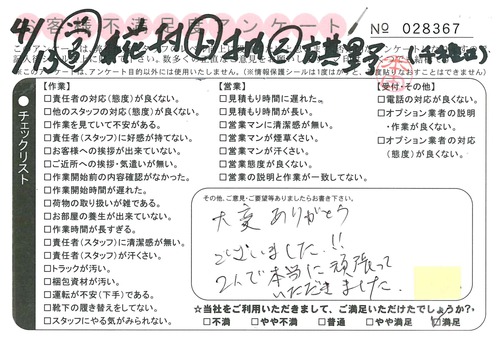 お客様不満足度アンケート
No 028367
チェックリスト
【作業】
□責任者の対応(態度)が良くない。
□他のスタッフの対応(態度)が良くない。
□作業を見ていて不安がある。
□責任者(スタッフ)に好感が持てない。
□お客様への挨拶が出来ていない。
□ご近所への挨拶・気遣いが無い。
□作業開始前の内容確認がなかった。
□作業開始時間が遅れた。
□荷物の取り扱いが雑である。
□お部屋の養生が出来ていない。
□作業時間が長すぎる。
□責任者(スタッフ)に清潔感が無い。
□責任者(スタッフ)が汗くさい。
□トラックが汚い。
□梱包資材が汚い。
□運転が不安(下手)である。
□靴下の履き替えをしてない。
□スタッフにやる気がみられない。
【営業】
□見積もり時間に遅れた。
□見積もり時間が長い。
□営業マンに清潔感が無い。
□営業マンが煙草くさい。
□営業マンが汗くさい。
□営業態度が良くない。
□営業の説明と作業が一致してない。
【受付・その他】
□電話の対応が良くない。
□オプション業者の説明
・作業が良くない。
□オプション業者の対応
(態度)が良くない。
その他、ご意見・ご要望等ありましたらお書き下さい。
大変ありがとう
ございました!!
2人で本当に頑張って
いただきました。
☆当社をご利用いただきまして、ご満足いただけたでしょうか?
□不満 □やや不満 □普通 □やや満足 ☑満足